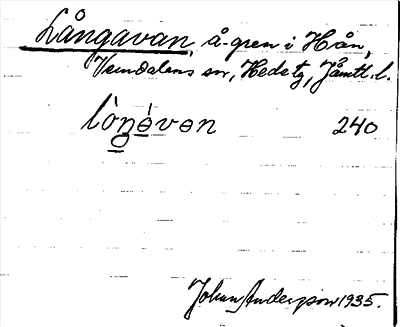 Långavan, å-gren i Hån,
Vemdalens sn, Hede tg, Jämtl. l.
lòŋévən 240
Johan Anderson 1935.